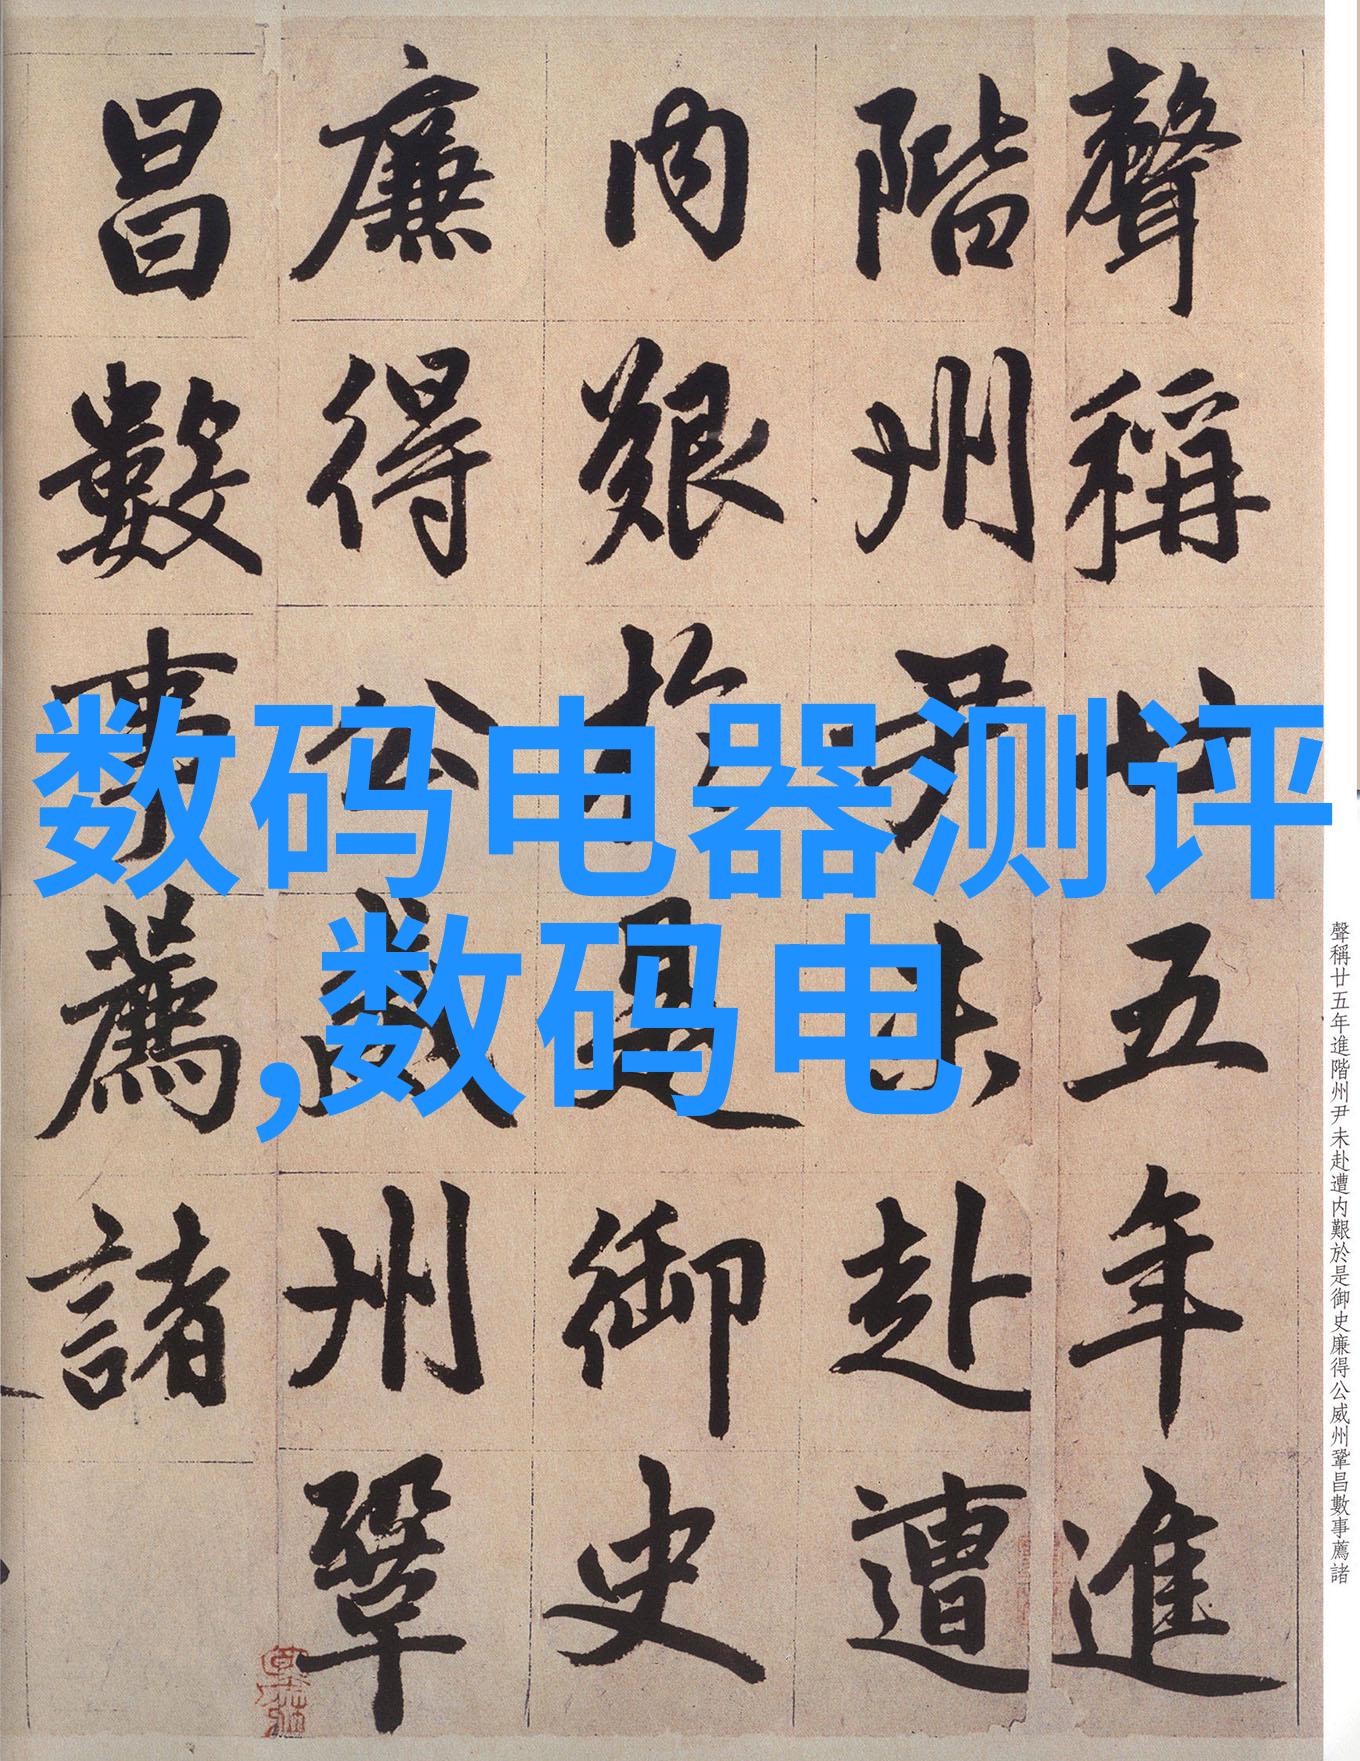 数码电器测评
,数码电
聲稱廿五年進
階州尹未赴遭
内艱於是御史
廉得公威州鞏
昌數事薦諸
聲稱廿五年進階州尹未赴遭内艱於是御史廉得公威州鞏昌數事薦諸